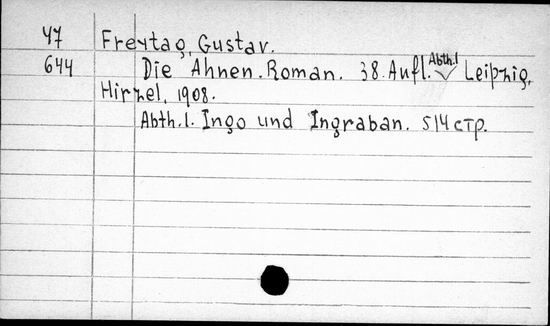 47 Freytag, Gustav.
644 Die Ahnen. Roman. 38. Aufl. Abth.1 Leipzig,
Hirzel, 1908.
Abth.1. Ingo und Ingraban. 514 стр.